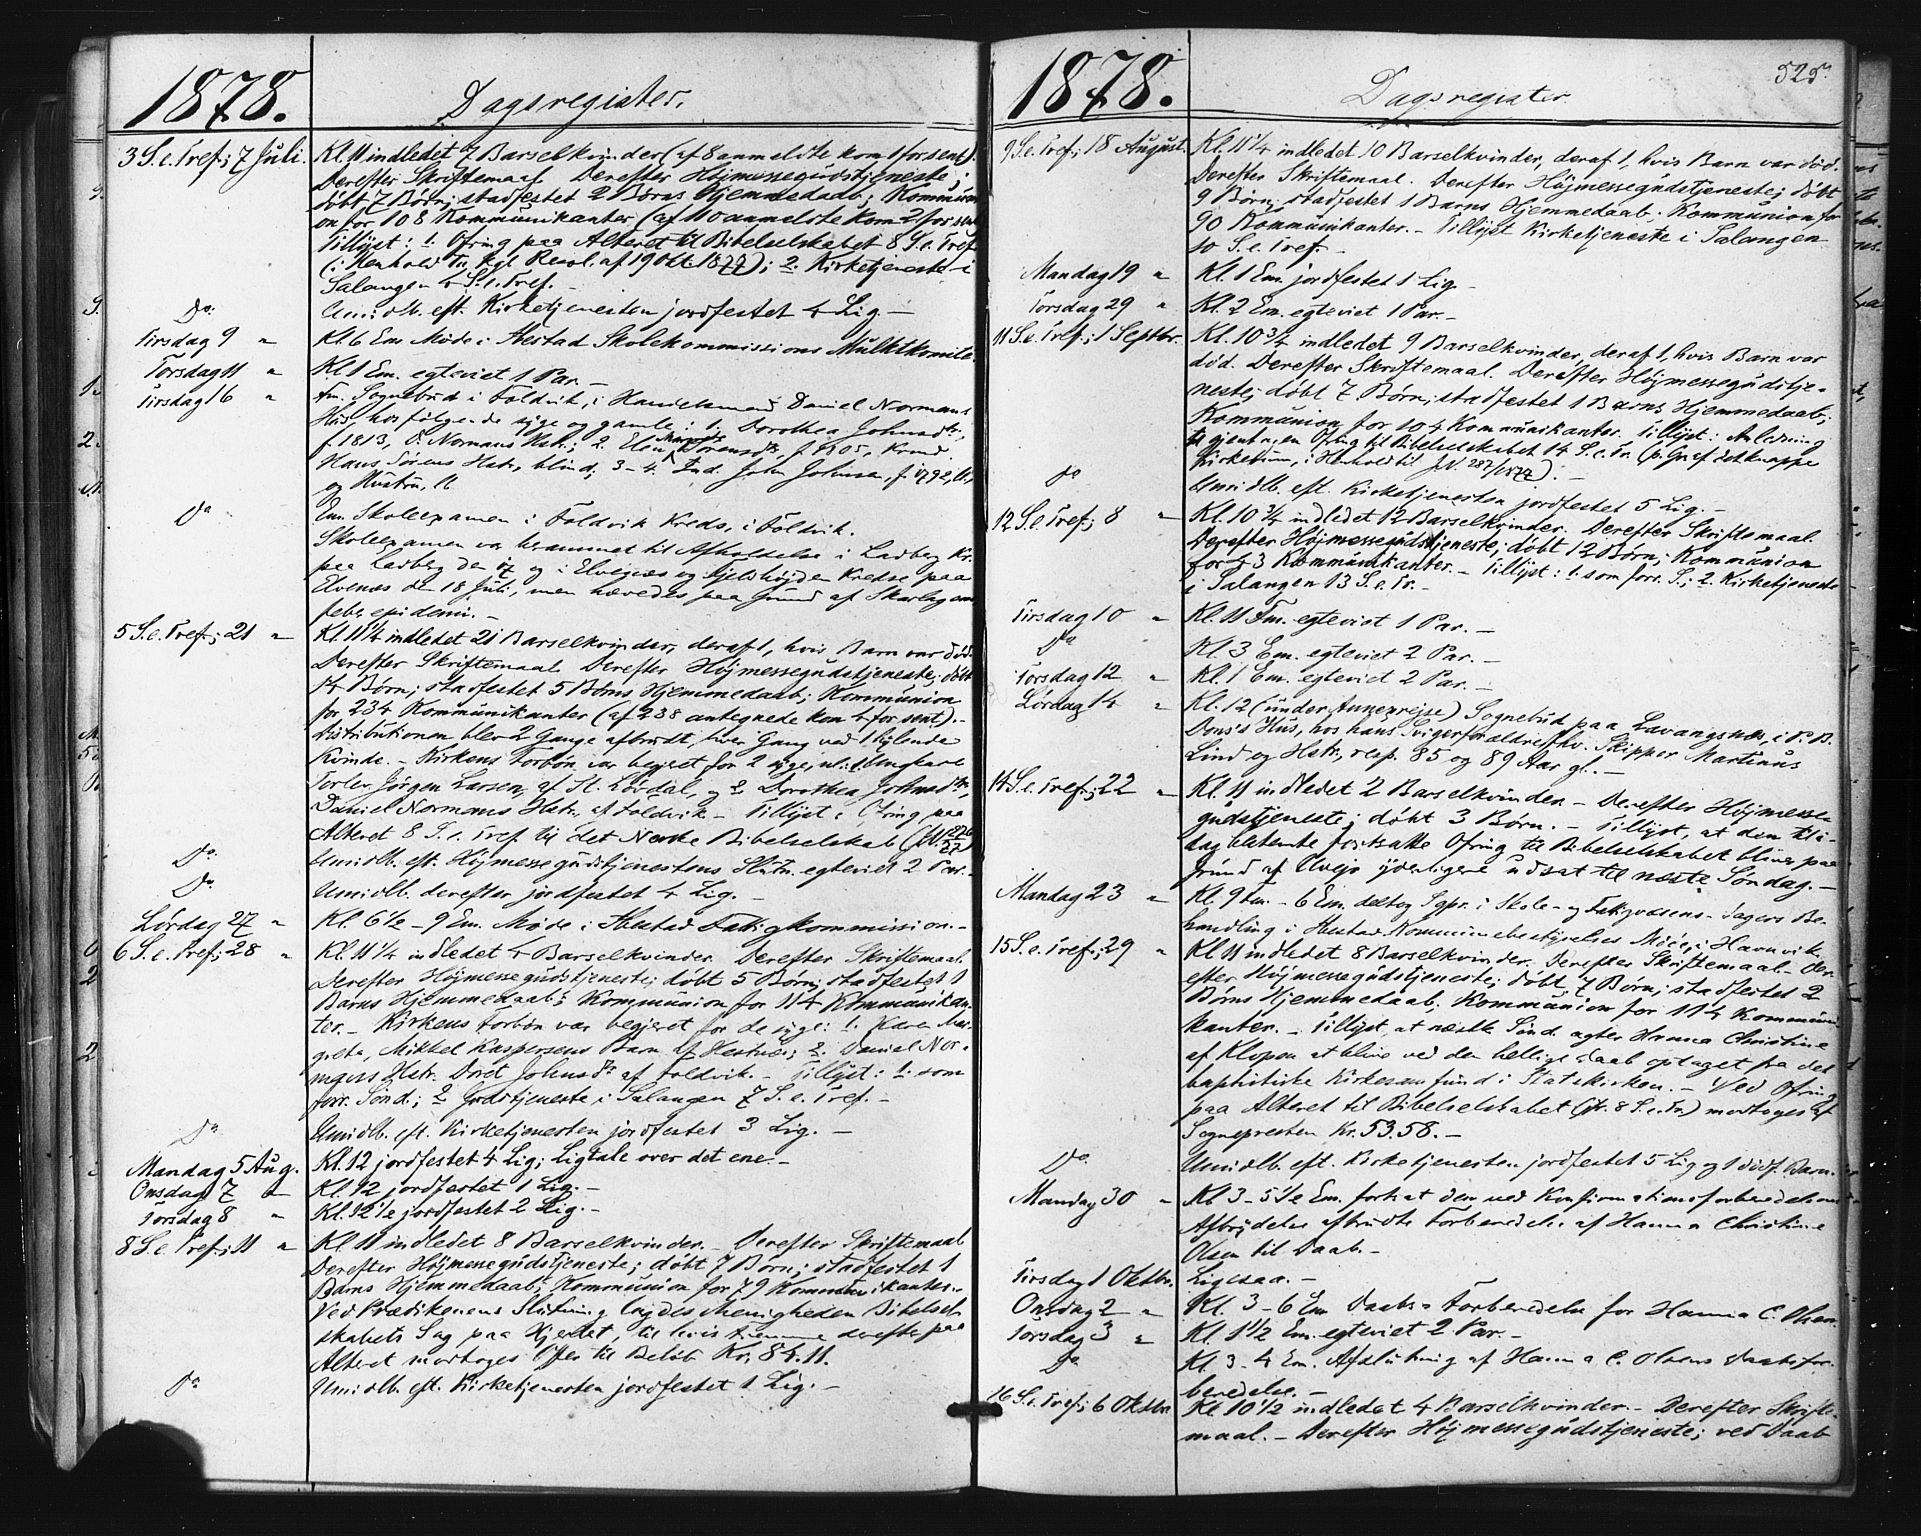 1878.
Dagsregister.
3 S. e. Tref; 7 Juli. Kl. 11 indledet 7 Barselkvinder (af 8 anmeldte kom 1 for sent).
Derefter Skriftemaal. Derefter Højmessegudstjeneste;
døbt 7 Børn; stadfestet 2 Børns Hjemmedaab; Kommuni-
on for 108 Kommunikanter (af 110 anmeldte kom 2 for sent
Tillyst: 1. Ofring paa Alteret til Bibelselskabet 8 S. e. Tref.
(i Henhold til kgl. Resol. af 19 Okt. 18); 2. Kirketjeneste i
Salangen 4 S. e. Tref. –
Do. Umidlb. eft. Kirketjenesten jordfestet 4 Lig –
Tirsdag 9 " Kl. 6 Em. Møde i Ibestad Skolekommissions Mulktkomite
Torsdag 11 " Kl. 1 Em. egteviet 1 Par. –
Tirsdag 16 " Fm. Sognebud i Foldvik, i Handelsmand Daniel Normans
Hus, hos følgende syge og gamle: 1. Dorothea Johnsdtr.,
f. 1813, D. Normans Hstr.; 2. Elen Sørensdtr., f. 1805,
Hans Sørens Hstr., blind; 3–4. Ind. John Johnsen, f. 1792,
og Hustru,
Do Em. Skoleexamen i Foldvik Kreds, i Foldvik.
Skoleexamen var berammet til Afholdelse i Ladberg Kr.
paa Ladberg den 17 og i Elvenæs og Kreds paa
Elvenæs den 18 Juli, men hævedes paa Grund af Skarlagens-
feberepidemi. –
5 S. e. Tref; 21 " Kl. 11 1/4 indledet 21 Barselkvinder, deraf 1, hvis Barn var død.
Derefter Skriftemaal. Derefter Højmessegudstjeneste; døbt
14 Børn; stadfestet 5 Børns Hjemmedaab; Kommunion
for 234 Kommunikanter (af 238 antegnede kom 4 for sent). –
Distributionen blev 2 Gange afbrudt, hver Gang ved 1 hylende
Kvinde. – Kirkens Forbøn var begjert for 2 syge, nl. 1. Ungkarl
Torlev Jørgen Larsen, af St. Løvdal, og 2. Dorothea Johnsdtr.,
Daniel Normans Hstr., af Foldvik. – Tillyst: Ofring paa
Alteret 8 S. e. Tref. til det Norske Bibelselskab
Do. Umidlb. eft. Højmessegudstjenestens Slutn. egteviet 2 Par. –
Do. Umidlb. derefter jordfestet 4 Lig. –
Lørdag 27 " Kl. 6 1/2 – 9 Em. Møde i Ibestad Fattigkommission. –
6 S. e. Tref; 28 " Kl. 11 1/4 indledet 4 Barselkvinder. Derefter Skriftemaal.
Derefter Højmessegudstjeneste; døbt 5 Børn; stadfestet 1
Barns Hjemmedaab; Kommunion for 114 Kommunikan-
ter. – Kirkens Forbøn var begjeret for de syge: 1. Karen Mar-
grete, Mikkel Kaspersens Barn af Hestnes; 2. Daniel Nor-
mans Hstr. Doret Johnsdr. af Foldvik. – Tillyst: 1. som
forr. Sønd.; 2. Gudstjeneste i Salangen 7 S. e. Tref. –
Do Umidlb. eft. Kirketjenesten jordfestet 3 Lig. –
Mandag 5 Aug. Kl. 12 jordfestet 4 Lig; Ligtale over det ene. –
Onsdag 7 " Kl. 12 jordfestet 1 Lig. –
Torsdag 8 " Kl. 12 1/2 jordfestet 2 Lig. –
8 S. e. Tref; 11 " Kl. 11 indledet 8 Barselkvinder. – Derefter Skriftemaal
Derefter Højmessegudstjeneste; døbt 7 Børn; stadfestet 1
Barns Hjemmedaab; Kommunion for 79 Kommunikanter. –
Ved Prædikenens Slutning lagdes Menigheden Bibelsel-
skabets Sag paa Hjertet, til hvis Fremme derefter paa
Alteret modtoges Offer til Beløb Kr. 84.11.
Do Umidlb. eft. Kirketjenesten jordfestet 1 Lig. –
1878.
Dagsregister.
525.
9 S. e. Tref; 18 August. Kl. 11 1/4 indledet 10 Barselkvinder, deraf 1, hvis Barn var død.
Derefter Skriftemaal. Derefter Højmessegudstjeneste; døbt
9 Børn; stadfestet 1 Barns Hjemmedaab; Kommunion for
90 Kommunikanter. – Tillyst Kirketjeneste i Salangen
10 S. e. Tref. –
Mandag 19 " Kl. 1 Em. jordfestet 1 Lig –
Torsdag 29 " Kl. 2 Em. egteviet 1 Par. –
11 S. e. Tref; 1 Septbr. Kl. 10 3/4 indledet 9 Barselkvinder, deraf 1, hvis Barn var
død. Derefter Skriftemaal. Derefter Højmessegudstje-
neste; døbt 7 Børn; stadfestet 1 Barns Hjemmedaab;
Kommunion for 104 Kommunikanter. Tillyst: Anledning
til gjentagen Ofring til Bibelselskabet 14 S. e. Tr. (p. Gr. af det knappe
Kirkerum, i Henhold til J. N. 287/1874). –
Do Umidlb. eft. Kirketjenesten jordfestet 5 Lig. –
12 S. e. Tref; 8 " Kl. 10 3/4 indledet 12 Barselkvinder. Derefter Skriftemaal.
Derefter Højmessegudstjeneste; døbt 12 Børn; Kommunion
for 73 Kommunikanter. – Tillyst: 1. som forr. S.; 2. Kirketjeneste
i Salangen 13 S. e. Tr. –
Tirsdag 10 " Kl. 11 Fm. egteviet 1 Par. –
Do Kl. 3 Em. egteviet 2 Par. –
Torsdag 12 " Kl. 1 Em. egteviet 2 Par. –
Lørdag 14 " Kl. 12 (under Annexrejse) Sognebud paa Lavangsnæs, i P. B.
Dons's Hus, hos hans Svigerforældre, fhv. Skipper Martinus
Lind og Hstr., resp. 85 og 89 Aar gl. –
14 S. e. Tref; 22 " Kl. 11 indledet 2 Barselkvinder. – Derefter Højmesse-
gudstjeneste; døbt 3 Børn. – Tillyst, at den til i-
dag bestemte fortsatte Ofring til Bibelselskabet bliver paa
Grund af Uvejr yderligere udsat til næste Søndag. –
Mandag 23 " Kl. 9 Fm. – 6 Em. deltog Sgpr. i Skole- og Fattigvæsens-Sagers Be-
handling i Ibestad Kommunebestyrelses Møde i Havnvik.
15 S. e. Tref; 29 " Kl. 11 indledet 8 Barselkvinder. Derefter Skriftemaal. Der-
efter Højmessegudstjeneste; døbt 7 Børn; stadfestet 2
Børns Hjemmedaab; Kommunion for 114 Kommuni-
kanter. – Tillyst, at næste Sønd. agter Hanna Christine
af Kloppen at blive ved den hellige Daab optaget fra det
baptistiske Kirkesamfund i Statskirken. – Ved Ofring
paa Alteret til Bibelselskabet (jfr. 8 S. e. Tr.) modtoges af
Sognepresten Kr. 53.58. –
Do. Umidlb. eft. Kirketjenesten jordfestet 5 Lig og 1 dødf. Barn.
Mandag 30 " Kl. 3–5 1/2 Em. fortsat den ved Konfirmationsforberedelsens
Afbrydelse afbrudte Forberedelse af Hanna Christine
Olsen til Daab. –
Tirsdag 1 Oktbr. Ligesaa. –
Onsdag 2 " Kl. 3–6 Em. Daabs-Forberedelse for Hanna C. Olsen.
Torsdag 3 " Kl. 1 1/2 Em. egteviet 2 Par. –
Do Kl. 3–4 Em. Afslutning af Hanna C. Olsens Daabsfor-
beredelse. –
16 S. e. Tref; 6 Oktbr. Kl. 10 1/2 indledet 4 Barselkvinder. – Derefter Skrifte-
maal. – Derefter Højmessegudstjeneste; ved Daab